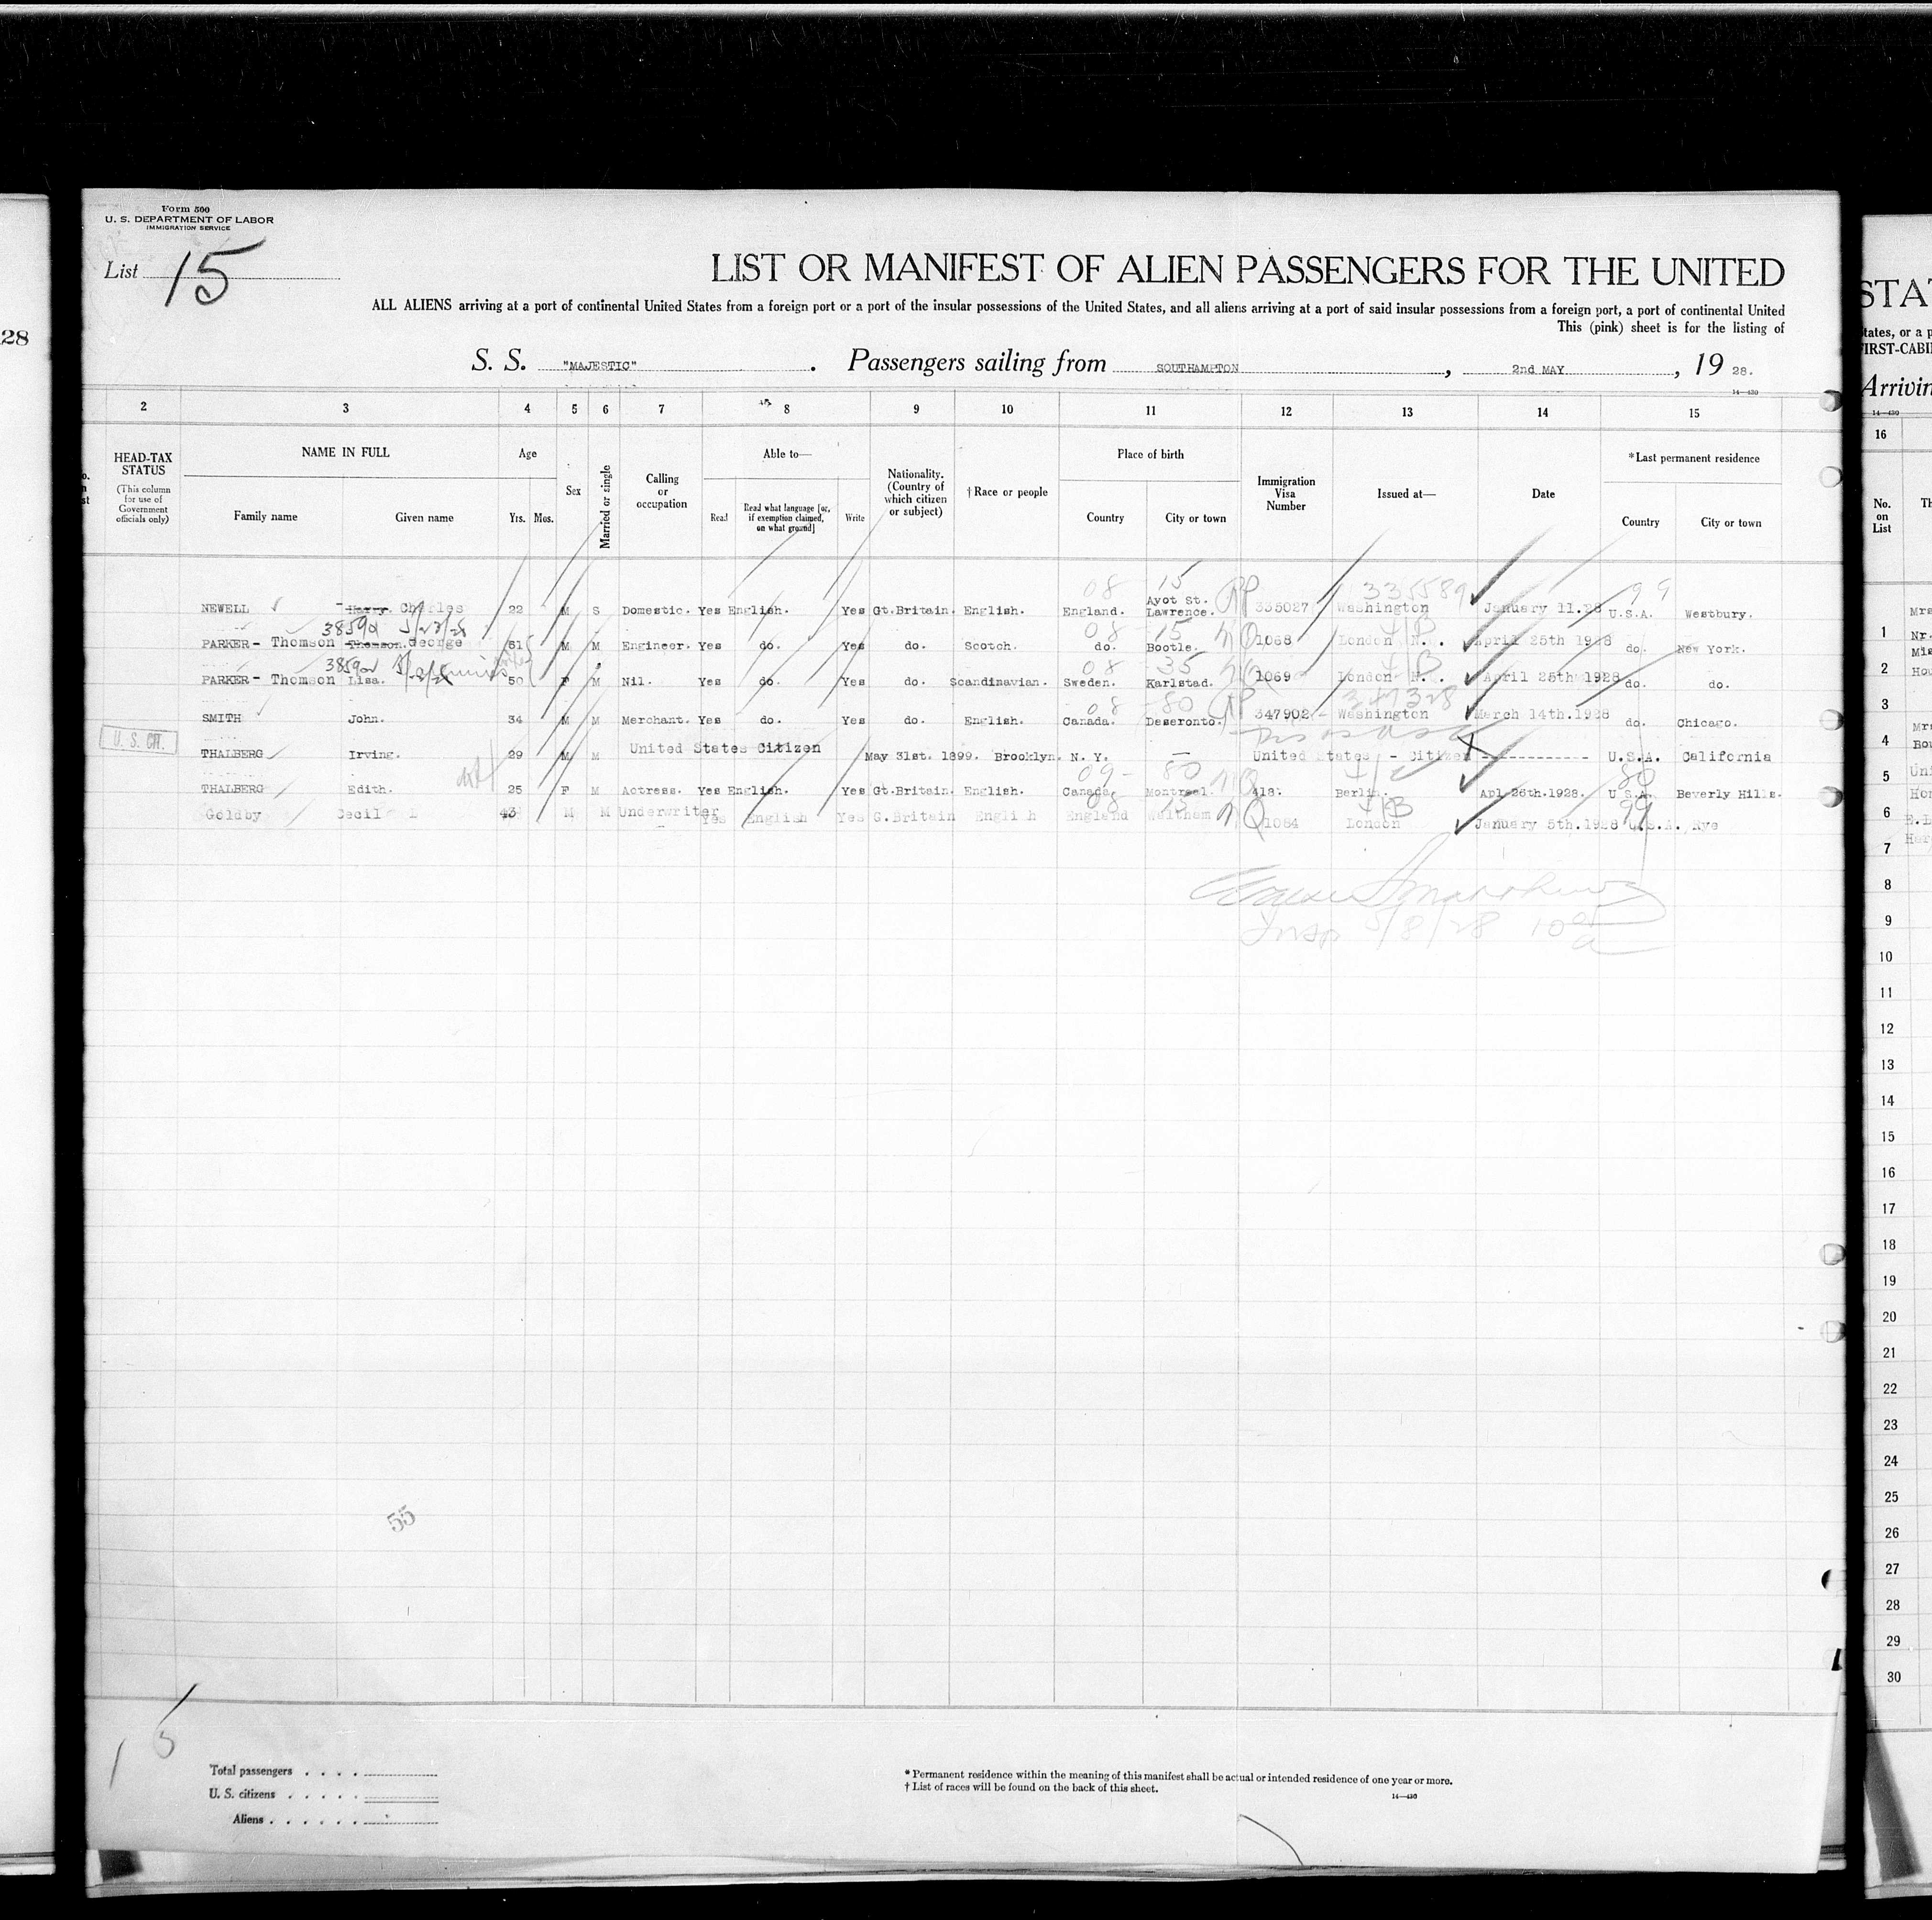 28
Form 500
U. S. DEPARTMENT OF LABOR
IMMIGRATION SERVICE
List 15
LIST OR MANIFEST OF ALIEN PASSENGERS FOR THE UNITED
ALL ALIENS arriving at a port of continental United States from a foreign port or a port of the insular possessions of the United States, and all aliens arriving at a port of said insular possessions from a foreign port, a port of continental United
This (pink) sheet is for the listing of
S. S. "MAJESTIC" . Passengers sailing from SOUTHAMPTON , 2nd MAY , 19 28.
14—430
2 3 4 5 6 7 8 9 10 11 12 13 14 15
HEAD-TAX STATUS (This column for use of Government officials only)
NAME IN FULL
Family name Given name
Age
Yrs. Mos.
Sex
Married or single
Calling or occupation
Able to—
Read Read what language [or, if exemption claimed, on what ground] Write
Nationality. (Country of which citizen or subject)
† Race or people
Place of birth
Country City or town
Immigration Visa Number
Issued at—
Date
* Last permanent residence
Country City or town
08 15 RP 335589 99
NEWELL Harry. Charles 22 M S Domestic. Yes English. Yes Gt.Britain. English. England. Ayot St. Lawrence. 335027 Washington January 11.28 U.S.A. Westbury.
08 15 NQ
PARKER - Thomson Thomson. George 51 M M Engineer. Yes do. Yes do. Scotch. do. Bootle. 1068 London April 25th 1928 do. New York.
08 35 NQ
PARKER - Thomson Lisa. 50 F M Nil. Yes do. Yes do. Scandinavian. Sweden. Karlstad. 1069 London April 25th 1928 do. do.
08 80 RP 347328
SMITH John. 34 M M Merchant. Yes do. Yes do. English. Canada. Deseronto. 347902 - Washington March 14th.1928 do. Chicago.
U. S. CIT.
THALBERG Irving. 29 M M United States Citizen May 31st. 1899. Brooklyn. N. Y. — United States - Citizen ----------- U.S.A. California
09- 80 NQ 80
THALBERG Edith. 25 F M Actress. Yes English. Yes Gt.Britain. English. Canada Montreal. 418. Berlin. Apl 26th.1928. U.S.A. Beverly Hills.
08 15 NQ 99
Goldby Cecil L 43 M M Underwriter Yes English Yes G.Britain English England Waltham 1084 London January 5th.1928 U.S.A. Rye
Insp 5/8/28
55
15
Total passengers . . . .
U. S. citizens . . . . .
Aliens . . . . . .
* Permanent residence within the meaning of this manifest shall be actual or intended residence of one year or more.
† List of races will be found on the back of this sheet.
14—430
STA
tates, or a p
FIRST-CABI
Arrivin
14—430
16
No. on List
Th
Mrs
1
Nr.
Mis
2
Hou
3
Mrs
4
Bou
5
Uni
Hon
6
7
8
9
10
11
12
13
14
15
16
17
18
19
20
21
22
23
24
25
26
27
28
29
30